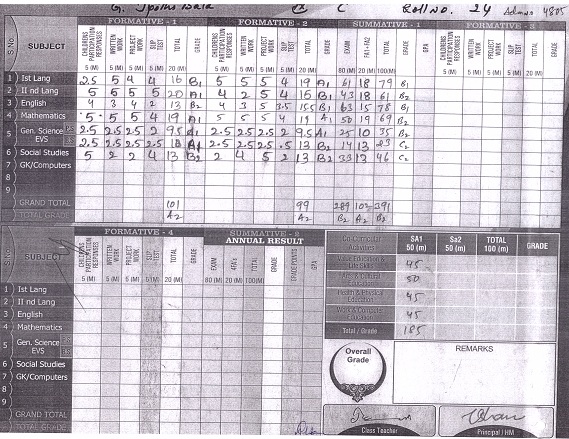 G. Jyothi Bala B C Roll No. 24 Admn 4805
FORMATIVE - 1 FORMATIVE - 2 SUMMATIVE - 1 FORMATIVE - 3
S.No. SUBJECT CHILDRENS PARTICIPATION RESPONSES WRITTEN WORK PROJECT WORK SLIP TEST TOTAL GRADE CHILDRENS PARTICIPATION RESPONSES WRITTEN WORK PROJECT WORK SLIP TEST TOTAL GRADE EXAM FA1+FA2 TOTAL GRADE GPA CHILDRENS PARTICIPATION RESPONSES WRITTEN WORK PROJECT WORK SLIP TEST TOTAL GRADE
5 (M) 5 (M) 5 (M) 5 (M) 20 (M) 5 (M) 5 (M) 5 (M) 5 (M) 20 (M) 80 (M) 20 (M) 100(M) 5 (M) 5 (M) 5 (M) 5 (M) 20 (M)
1 Ist Lang 2.5 5 4 4 16 B1 5 5 5 4 19 A1 61 18 79 B1
2 II nd Lang 5 5 5 5 20 A1 4 2 5 4 15 B1 43 18 61 B2
3 English 4 3 4 2 13 B2 4 3 5 3.5 15.5 B1 63 15 78 B1
4 Mathematics 5 5 5 4 19 A1 5 5 5 4 19 A1 50 19 69 B2
5 Gen. Science PS 2.5 2.5 2.5 2 9.5 A1 2.5 2.5 2.5 2 9.5 A1 25 10 35 B2
EVS 2.5 2.5 2.5 2.5 10 A1 2.5 2.5 2.5 .5 13 B2 14 13 23 C2
6 Social Studies 5 2 2 4 13 B2 2 4 5 2 13 B2 33 13 46 C2
7 GK/Computers
8
9
GRAND TOTAL 101 99 289 102 391
TOTAL GRADE A2 A2 B2 A2 B2
FORMATIVE - 4 SUMMATIVE - 2
ANNUAL RESULT
SUBJECT CHILDRENS PARTICIPATION RESPONSES WRITTEN WORK PROJECT WORK SLIP TEST TOTAL GRADE EXAM 4FA's TOTAL GRADE GRADE POINTS GPA
5 (M) 5 (M) 5 (M) 5 (M) 20 (M) 80 (M) 20 (M) 100(M)
1 Ist Lang
2 II nd Lang
3 English
4 Mathematics
5 Gen. Science
EVS
6 Social Studies
7 GK/Computers
8
9
GRAND TOTAL
TOTAL GRADE
SA1 50 (m) Sa2 50 (m) TOTAL 100 (M) GRADE
Life Skills 45
50
45
45
Total / Grade 185
Overall Grade
REMARKS
Class Teacher Principal / HM